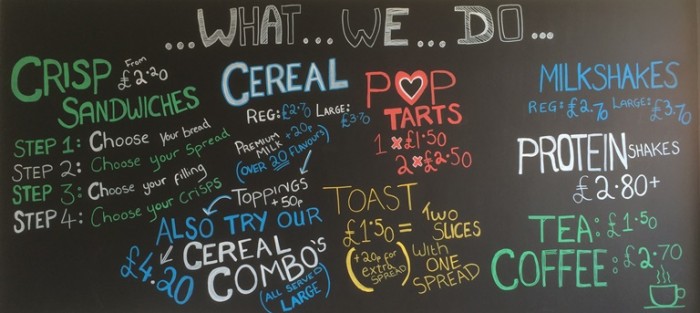 ...WHAT...WE...DO...
CRISP From £2.20
SANDWICHES
STEP 1: Choose your bread
STEP 2: Choose your spread
STEP 3: Choose your filling
STEP 4: Choose your crisps
CEREAL
REG: £2.70 LARGE: £3.70
PREMIUM MILK +20p
(OVER 20 FLAVOURS)
TOPPINGS
+50p
ALSO TRY OUR
CEREAL
COMBO'S
£4.20
(ALL SERVED
LARGE)
POP
TARTS
1 x £1.50
2 x £2.50
TOAST
£1.50 = TWO
SLICES
(+20p for
extra
SPREAD)
WITH
ONE
SPREAD
MILKSHAKES
REG: £2.70 LARGE: £3.70
PROTEIN SHAKES
£2.80+
TEA: £1.50
COFFEE: £2.70